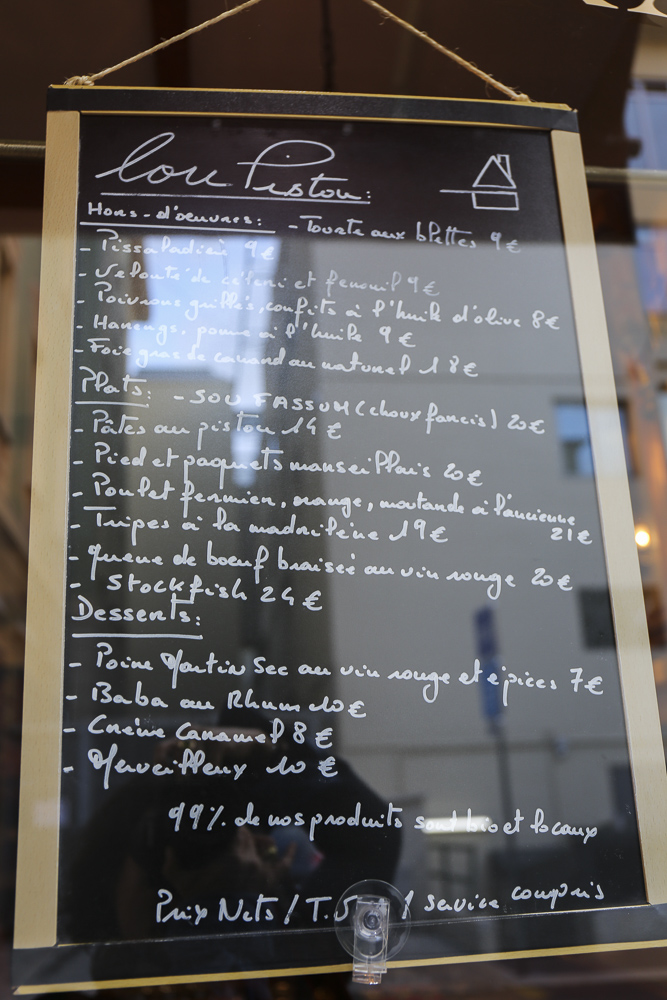 lou Pistou:
Hors-d'oeuvres: - Tourte aux blettes 9€
- Pissaladière 9€
- Velouté de céleri et fenouil 9€
- Poivrons grillés, confits à l'huile d'olive 8€
- Harengs, pomme à l'huile 9€
- Foie gras de canard au naturel 18€
Plats: - SOU FASSUM (choux farcis) 20€
- Pâtes au pistou 14€
- Pied et paquets marseillais 20€
- Poulet fermier, orange, moutarde à l'ancienne
21€
- Tripes à la madrilène 19€
- queue de boeuf braisée au vin rouge 20€
- Stockfish 24€
Desserts:
- Poire Martin Sec au vin rouge et épices 7€
- Baba au Rhum 10€
- Crème Caramel 8€
- Merveilleux 10€
99% de nos produits sont bio et locaux
Prix Nets / T.S / service compris